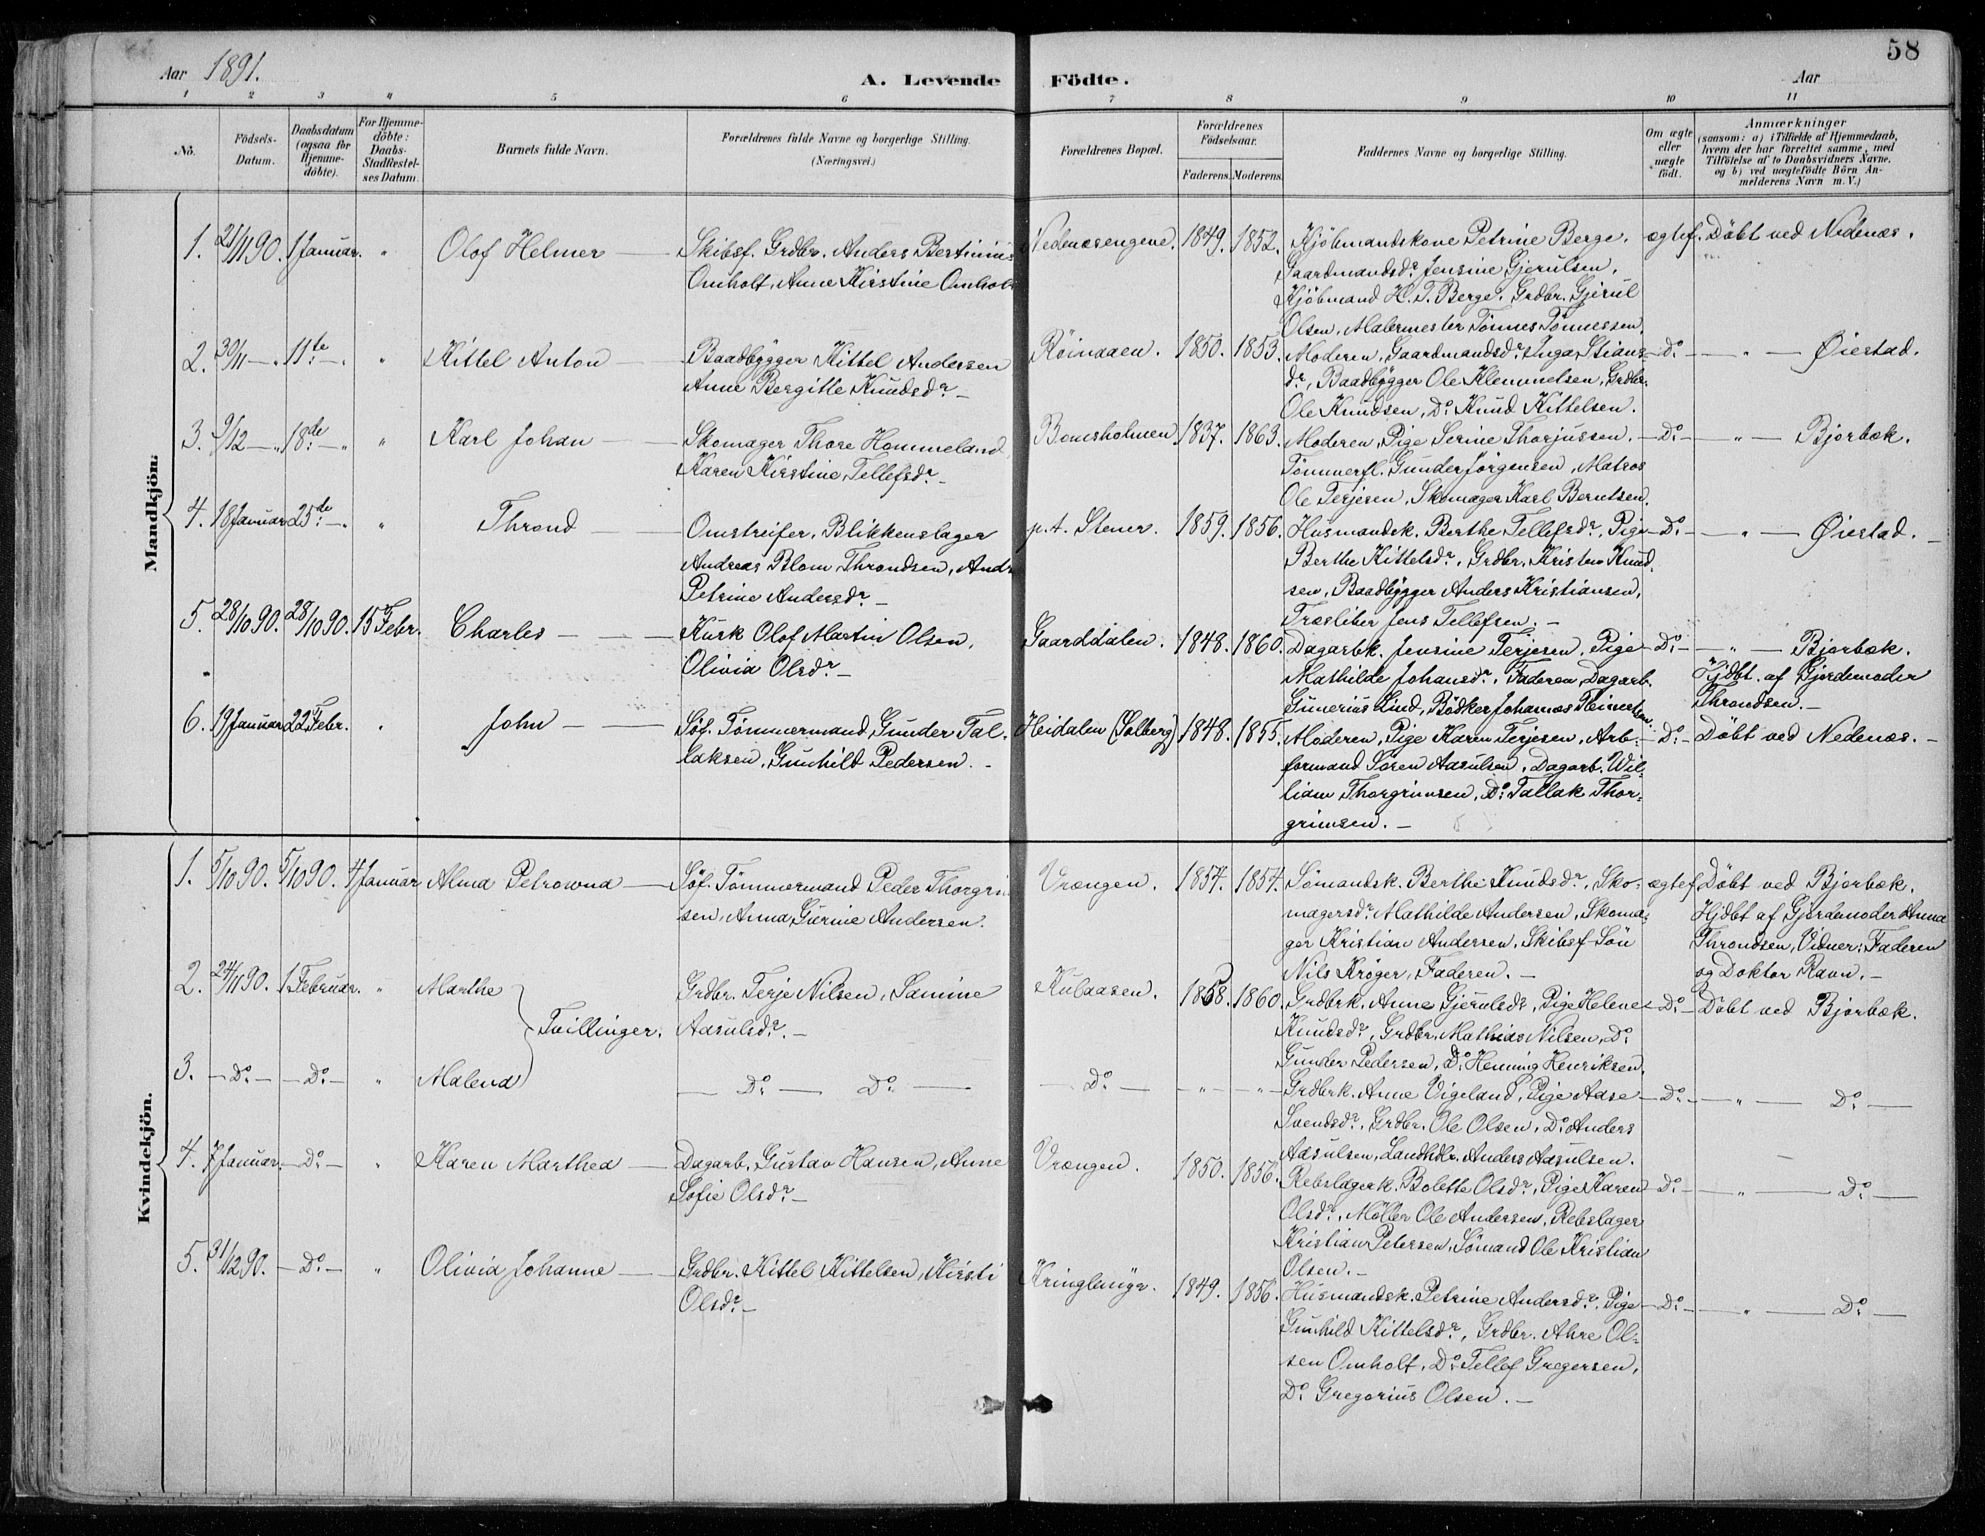 58
Aar 1891.
A. Levende Födte.
Aar
1 2 3 4 5 6 7 8 9 10 11
No.
Födsels-Datum.
Daabsdatum (ogsaa for Hjemme-döbte).
For Hjemme-döbte: Daabs-Stadfæstel-ses Datum.
Barnets fulde Navn.
Forældrenes fulde Navne og borgerlige Stilling.
(Næringsvei.)
Forældrenes Bopæl.
Forældrenes Födselsaar.
Faderens. Moderens.
Faddernes Navne og borgerlige Stilling.
Om ægte eller uægte födt.
Anmærkninger
(saasom: a) i Tilfælde af Hjemmedaab, hvem der har forrettet samme, med Tilföielse af to Daabsvidners Navne, og b) ved uægtefödte Börn An-melderens Navn m. V.)
Mandkjön.
1. 21/11 90. 1 Januar. " Olof Helmer — Skibsf. Grdbr. Anders Bertinius
Omholt, Anne Kirstine Omholt
Nedenæsengene. 1849. 1852. Kjöbmandskone Petrine Berge. ægtef. Döbt ved Nedenæs.
Gaardmandsdr. Jensine Gjerulsen,
Kjöbmand H. T. Berge, Grdbr. Gjerul
Olsen, Malermester Tönnes Tönnessen.
2. 30/11 — " 11te — " " Kittel Anton — Baadbygger Kittel Andersen
Anne Bergitte Knudsdr. —
Röinaaen. 1850. 1853. Moderen, Gaardmandsdr. Inga Stians- — Do — — " — Øiestad.
dr, Baadbygger Ole Klemmetsen, Grdbr.
Ole Knudsen, Do Knud Kittelsen.
3. 9/12 — " 18de — " " Karl Johan — Skomager Thore Hommeland,
Karen Kirstine Tellefsdr. —
Bomsholmen 1837. 1863. Moderen, Pige Serine Thorjussen. — Do — — " — Bjorbæk.
Tömmerfl. Gunder Jörgensen, Matros
Ole Terjesen, Skomager Karl Berntsen.
4. 18 Januar 25de — " " Thrond — Omstreifer, Blikkenslager
Andreas Blom Throndsen, And
Petrine Andersdr. —
p.t. Stener. 1859. 1856. Husmandsk. Berthe Tellefsdr, Pige — Do — — " — Øiestad. —
Berthe Kittelsdr, Grdbr. Kristen Knud-
sen, Baadbygger Anders Kristiansen,
Træsliber Jens Tellefsen. —
5. 28/10 90. 28/10 90. 15 Febr. Charles — — Kusk Olof Martin Olsen,
Olivia Olsdr. —
Gaarddalen. 1848. 1860. Dagarbk. Jensine Terjesen, Pige — Do — — " — Bjorbæk.
Mathilde Johansdr, Faderen, Dagarb. Hjdbt. af Gjordemoder
Gunerius Lind, Bödker Johannes Throndsen. —
6. 19 Januar 22 Febr. " John — Söf. Tömmermand Gunder Tal-
laksen, Gunhilt Pedersen. —
Heidalen (Solberg) 1848. 1855. Moderen, Pige Karen Terjesen, Arb- — Do — Döbt ved Nedenæs. —
formand Søren Aasulsen, Dagarb. Wil-
liam Thorgrimsen, Do Tallak Thor-
grimsen. —
Kvindekjön.
1. 5/10 90. 5/10 90. 4 Januar Alma Petrowna — Söf. Tömmermand Peder Thorgri
sen, Anna Gurine Andersen.
Vrængen. 1857. 1854. Sömandsk. Berthe Knudsdr, Sko- ægtef. Döbt ved Bjorbæk.
magersdr. Mathilde Andersen, Skoma- Hjdbt af Gjordemoder Anna
ger Kristian Andersen, Skibsf. Sön Throndsen, Vidner: Faderen
Nils Kröger, Faderen. — og Doktor Ravn. —
2. 24/11 90. 1 Februar. " Marthe Tvillinger. Grdbr. Terje Nilsen, Samine
Aasulsdr. —
Kubaasen. 1858. 1860. Grdbrk. Anne Gjerulsdr, Pige Helene — Do — Döbt ved Bjorbæk.
Knudsdr, Grdbr. Mathias Nilsen, Do
Gunder Pedersen, Do Henning Henriksen.
3. — Do — — Do — " Malena — Do — Do —
— Do — " " Grdbrk. Anne Vigeland, Pige Aase — Do — — " — Do —
Svendsdr, Grdbr. Ole Olsen, Do Anders
Aasulsen, Landhdlr. Anders Aasulsen.
4. 7 Januar. — Do — " Karen Marthea — Dagarb. Gustav Hansen, Anne
Sofie Olsdr. —
Vrængen. 1850. 1856. Rebslagerk. Bolette Olsdr, Pige Karen — Do — — " — Do —
Olsdr, Möller Ole Andersen, Rebslager
Kristian Petersen, Sömand Ole Kristian
Olsen. —
5. 31/12 90. — Do — " Olivia Johanne — Grdbr. Kittel Kittelsen, Kirsti
Olsdr. —
Kringlemyr. 1849. 1856. Husmandsk. Petrine Andersdr, Pige — Do — — " — Do —
Gunhild Kittelsdr, Grdbr. Ahre Ol-
sen Omholt, Do Tellef Gregersen,
Do Gregorius Olsen. —